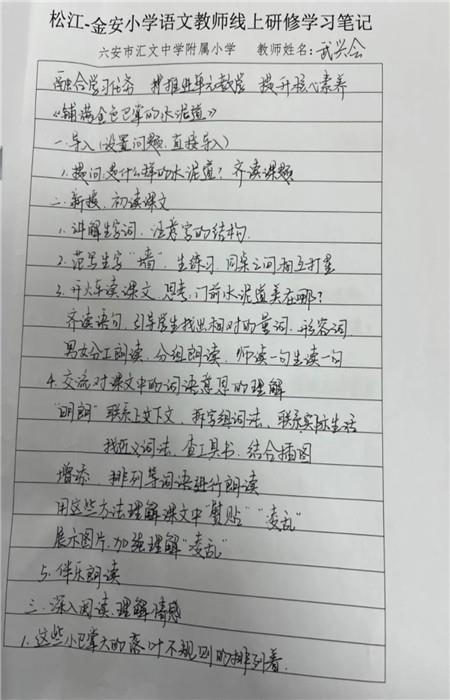 松江-金安小学语文教师线上研修学习笔记
六安市汇文中学附属小学 教师姓名:武兴会
融合学习任务 推进单元教学 提升核心素养
《铺满金色巴掌的水泥道》
一.导入(设置问题,直接导入)
1.提问:是什么样的水泥道?齐读课题
二.新授.初读课文
1.讲解生字词.注意字的结构.
2.范写生字"墙".生练习.同桌之间相互打星
3.开火车读课文.思考:门前水泥道美在哪?
齐读语句.引导学生找出相对的量词.形容词.
男女分工朗读.分组朗读.师读一句生读一句
4.交流对课文中的词语意思的理解
"明朗"联系上文下文,拆字组词法.联系实际生活
找近义词法.查工具书.结合插图
增添 排列等词语进行朗读
用这些方法理解课文中"熨贴""凌乱"
展示图片.加强理解"凌乱"
5.伴乐朗读
三.深入阅读.理解情感
1.这些小巴掌大的落叶不规则的排列着.